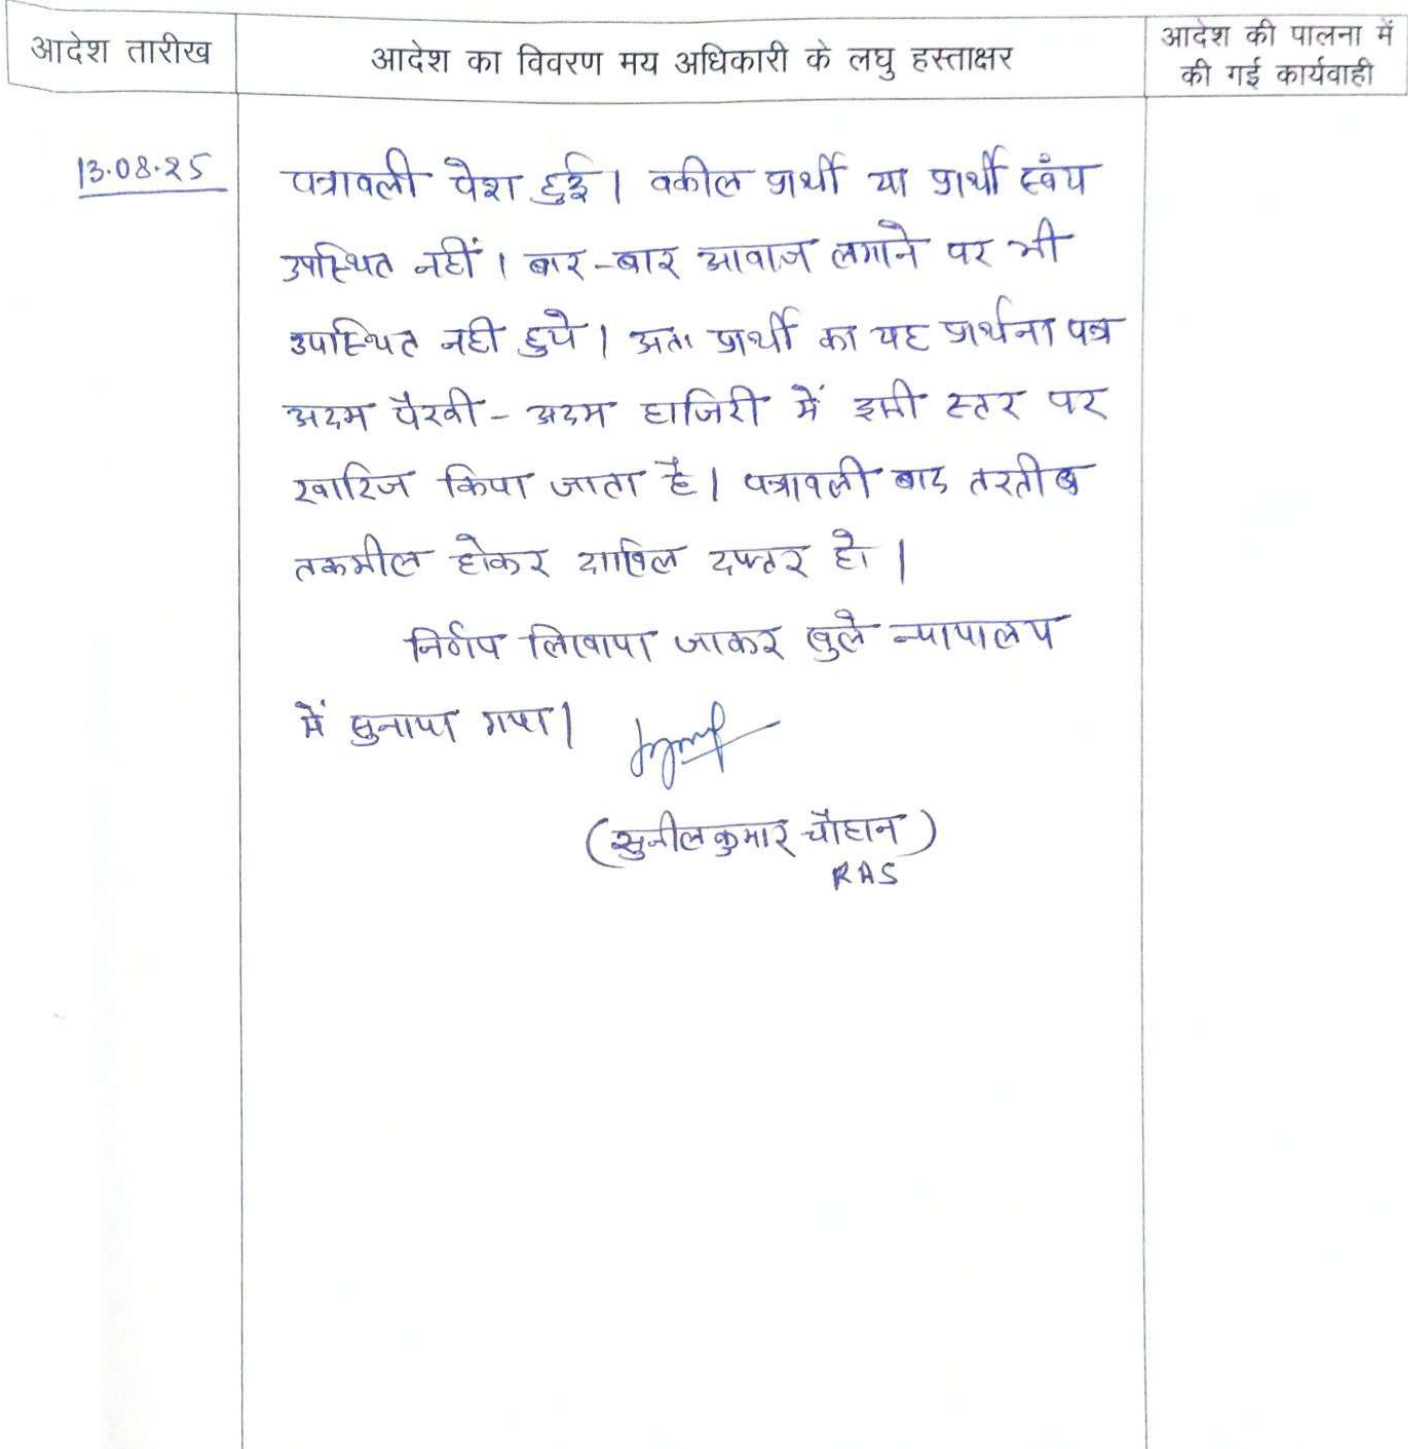 आदेश तारीख
आदेश का विवरण मय अधिकारी के लघु हस्ताक्षर
आदेश की पालना में
की गई कार्यवाही
13.08.25
पत्रावली पेश हुई। वकील प्रार्थी या प्रार्थी स्वंय
उपस्थित नहीं। बार-बार आवाज लगाने पर भी
उपस्थित नही हुये। अतः प्रार्थी का यह प्रार्थना पत्र
अदम पैरवी - अदम हाजिरी में इसी स्तर पर
खारिज किया जाता है। पत्रावली बाद तरतीब
तकमील होकर दाखिल दफ्तर हो।
निर्णय लिखाया जाकर खुले न्यायालय
में सुनाया गया।
(सुनील कुमार चौहान)
RAS